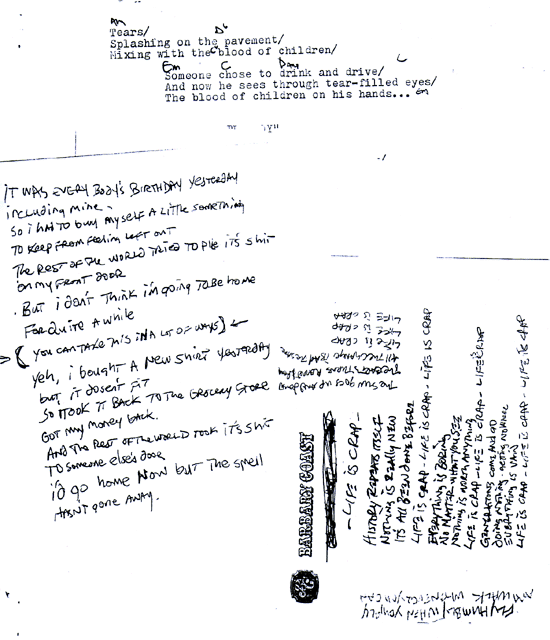 Am
Tears/
Splashing on the pavement/
Mixing with the blood of children/
Em C
Someone chose to drink and drive/
And now he sees through tear-filled eyes/
The blood of children on his hands... Em
IT WAS EVERYBODY'S BIRTHDAY YESTERDAY
including mine.
So i HAD TO buy myself A LiTTle SomeTHing
TO Keep From Feeling LefT OuT
The REST OF THE WORLD TRieD TO Pile iT'S SHiT
ON my FRONT DOOR
But i don'T THink i'm going TO Be home
FOR QuiTe A while
(you CAN TAKE THis iN A LOT OF WAYS)
yeh, i bougHT A New SHiRT yesTeRDAY
buT iT doesn'T FiT
So i TOOK iT BACK TO THE GROCERY STORE
GOT my MONEY back.
AND THE REST OF THE WORLD TOOK iT'S SHiT
TO SomeONE else's DOOR
i'D go HOME NOW buT THE smell
HASN'T gone AWAY.
LIFE IS CRAP
LIFE IS CRAP
LIFE IS CRAP
The sun goes up and down
BARBARY COAST
- LIFE IS CRAP -
HISTORY REPEATS ITSELF
NOTHING IS REALLY NEW
IT'S ALL BEEN DONE BEFORE
LIFE IS CRAP - LIFE IS CRAP - LIFE IS CRAP
EVERYTHING IS BORING
NO MATTER WHAT YOU SEE
NOTHING IS WORTH ANYTHING
LIFE IS CRAP - LIFE IS CRAP - LIFE IS CRAP
GENERATIONS COME AND GO
EVERYTHING IS VAIN
LIFE IS CRAP - LIFE IS CRAP - LIFE IS CRAP